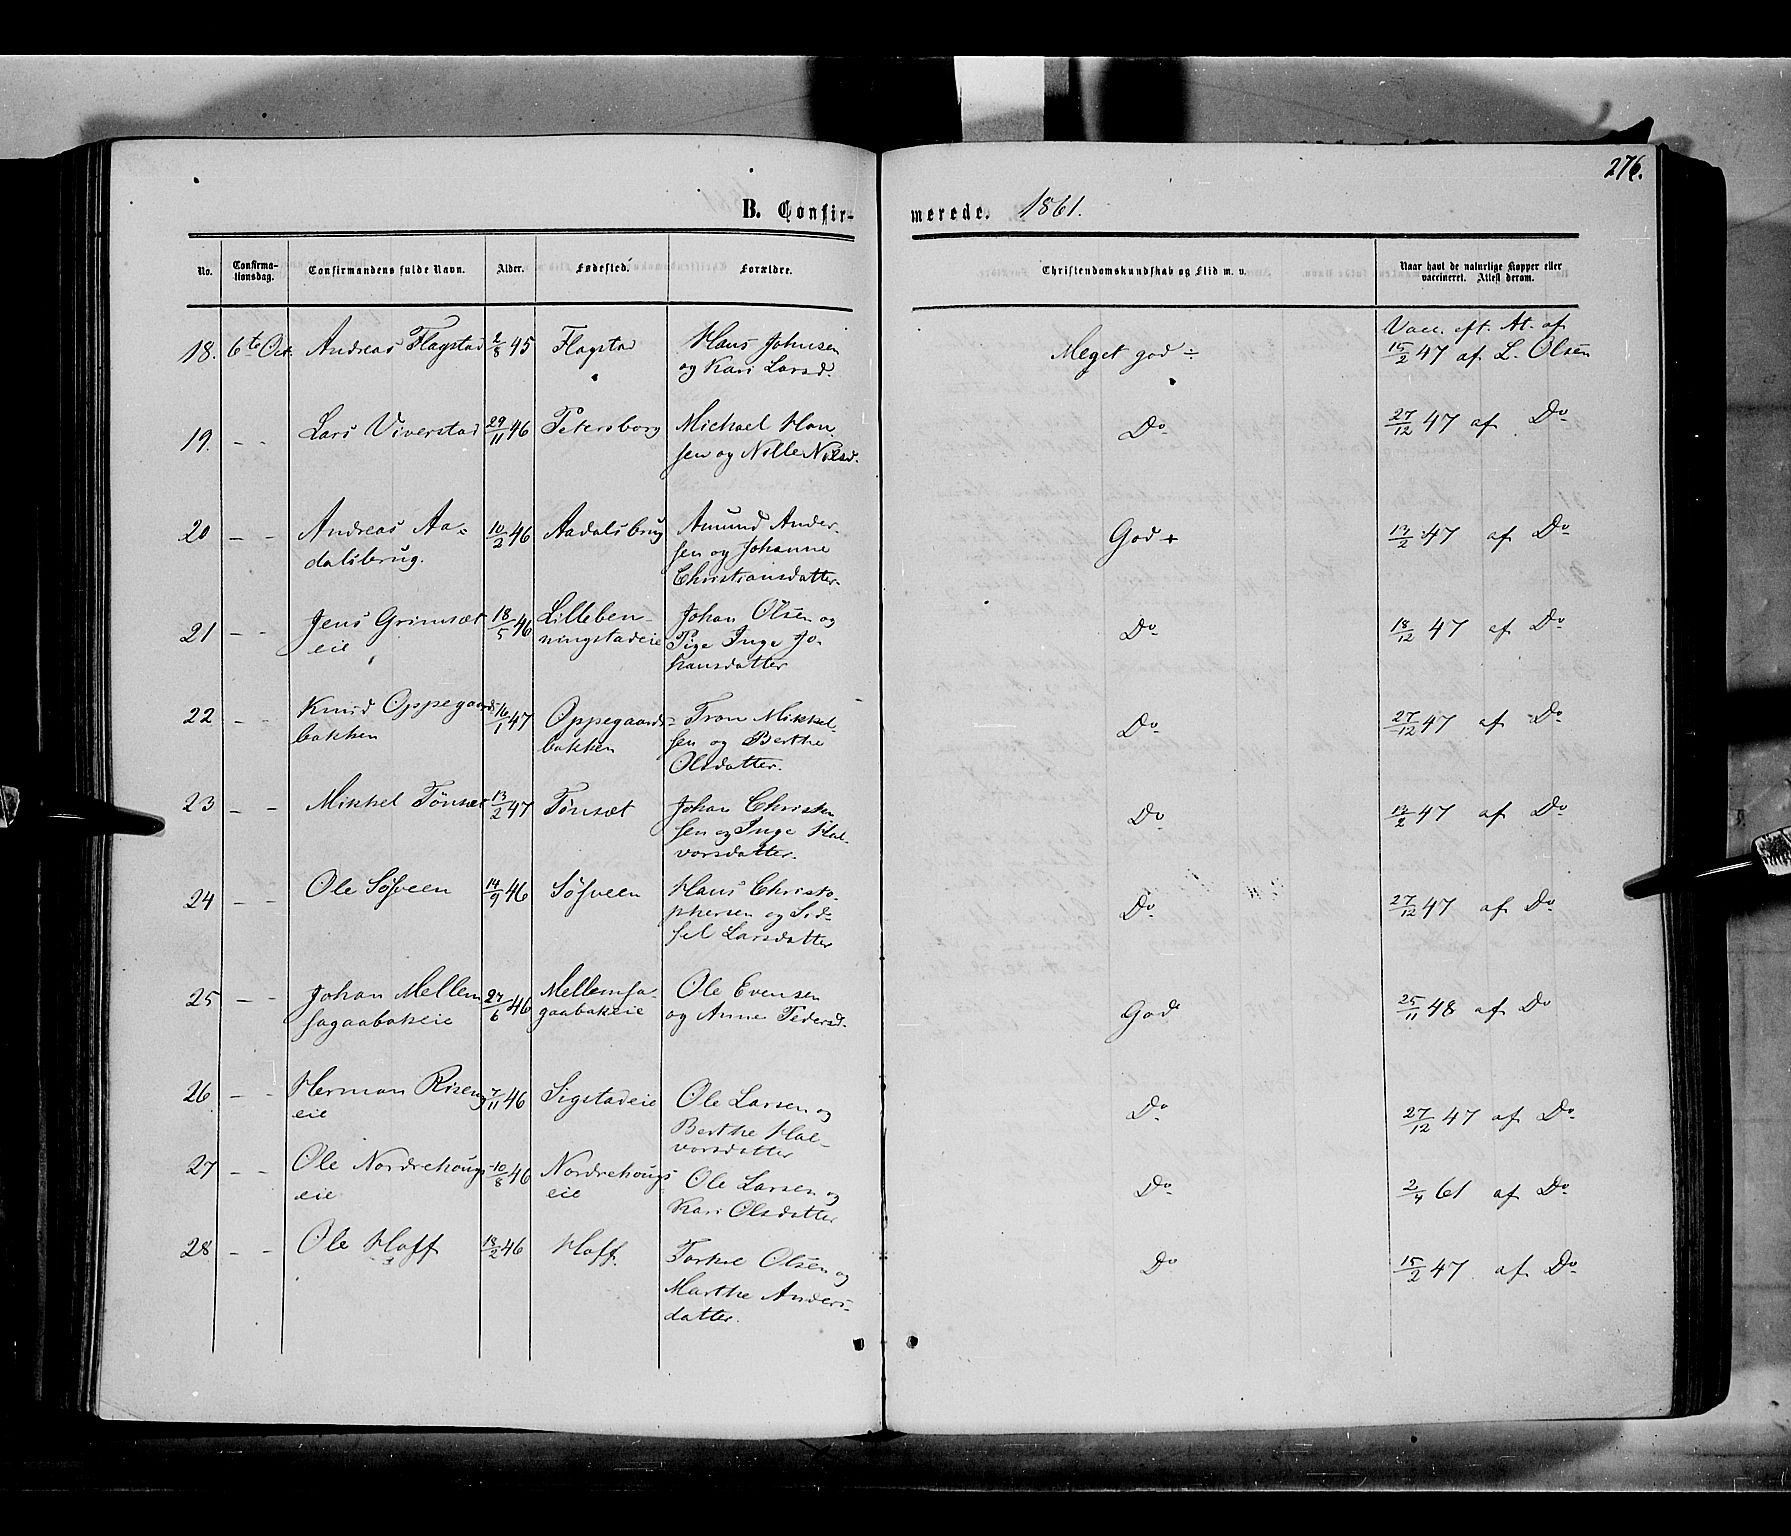 276.
B. Confir-
merede. 1861.
No.
Confirma-
tionsdag.
Confirmandens fulde Navn.
Alder.
Fødested.
Forældre.
Christendomskundskab og Flid m. v.
Naar havt de naturlige Kopper eller
vaccineret. Attest derom.
18. 6te Oct. Andreas Flagstad 2/8 45 Flagstad Hans Johnsen
og Kari Larsd.
Meget god ÷
Vacc. eft. At. af
15/2 47 af L. Olsen
19. - - Lars Viverstad 29/11 46 Petersborg Michael Han
sen og Nille Nilsd.
Do
27/12 47 af Do
20 - - Andreas Aa-
dalsbrug.
10/2 46 Aadalsbrug Amund Ander-
sen og Johanne
Christiansdatter
God +
13/2 47 af Do
21 - - Jens Grimsæt
eie
18/5 46 Lilleben-
ningstadeie
Johan Olsen og
Pige Inge Jo-
hansdatter
Do
18/12 47 af Do
22 - - Knud Oppegaards
bakken
16/1 47 Oppegaards
bakken
Tron Mikkel
sen og Berthe
Olsdatter.
Do
27/12 47 af Do
23 - - Mikkel Tønsæt 13/2 47 Tønsæt Johan Christen
sen og Inge Hal-
vorsdatter.
Do
13/2 47 af Do
24 - - Ole Søsveen 14/9 46 Søsveen Hans Christo-
phersen og Sid-
sel Larsdatter
Do
27/12 47 af Do
25 - - Johan Mellem
sagaabakeie
27/6 46 Mellemsa-
gaabakeie
Ole Evensen
og Anne Pedersd.
God
25/11 48 af Do
26 - - Herman Riseng
eie
7/11 46 Sigstadeie Ole Larsen og
Berthe Hal-
vorsdatter
Do
27/12 47 af Do
27 - - Ole Nordrehougs
eie
10/8 46 Nordrehougs
eie
Ole Larsen og
Kari Olsdatter
Do
2/4 61 af Do
28 - - Ole Hoff 13/2 46 Hoff. Torkel Olsen og
Marthe Anders-
datter.
Do
15/2 47 af Do